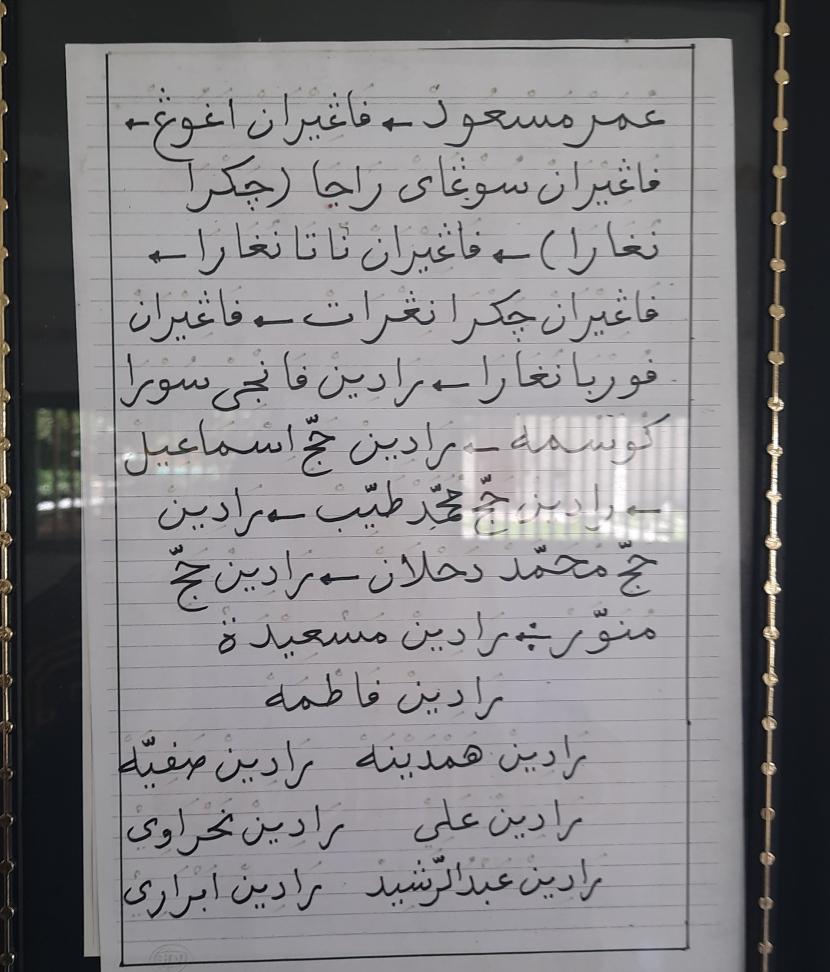 عمر مسعود ← فاڠيران اڬوڠ ←
فاڠيران سوڠاي راجا (چكرا
نغارا) ← فاڠيران ناتا نغارا ←
فاڠيران چكرا نڠرات ← فاڠيران
فوربا نغارا ← رادين فانجى سورا
كوسمه ← رادين حجّ اسماعيل
← رادين حجّ محمّد طيّب ← رادين
حجّ محمّد دحلان ← رادين حجّ
منوّر ÷ رادين مسعيدة
رادين فاطمه
رادين همدينه رادين صفيّه
رادين على رادين نحراوي
رادين عبدالرّشيد رادين ابراري